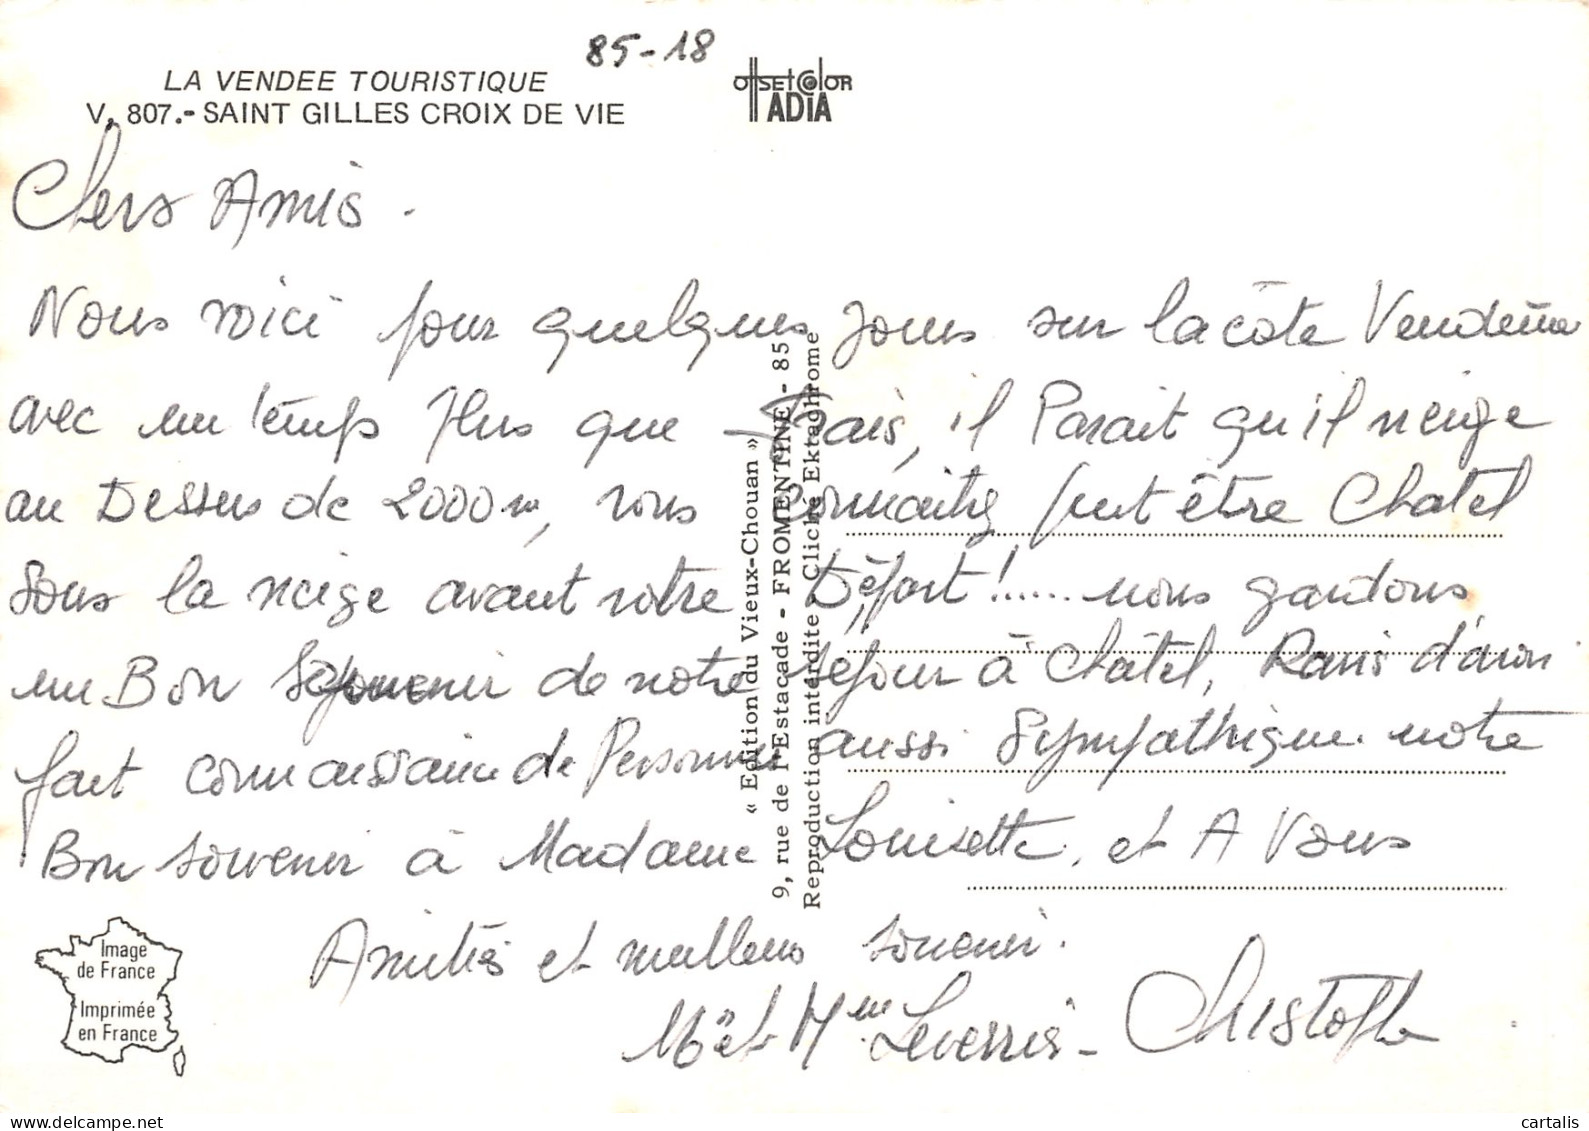 85-18
LA VENDEE TOURISTIQUE
V. 807.- SAINT GILLES CROIX DE VIE
OffSEt COlOR
ADiA
Chers Amis.
Nous voici pour quelques Jours sur la côte Vendéenne
avec un temps plus que frais, il Parait qu'il neige
au Dessus de 2000m, vous connaitrez peut être Chatel
sous la neige avant votre Départ!...... nous gardons
un Bon souvenir de notre séjour à Châtel, Ravis d'avoir
fait connaissance de Personnes aussi sympathique. notre
Bon souvenir à Madame Louisette, et A Vous
Amitiés et meilleurs souvenir.
Mr et Mme Christophe
« Edition du Vieux-Chouan »
9, rue de l'Estacade - FROMENTINE - 85
Reproduction interdite - Cliché Ektachrome
Image
de France
Imprimée
en France
cartalis